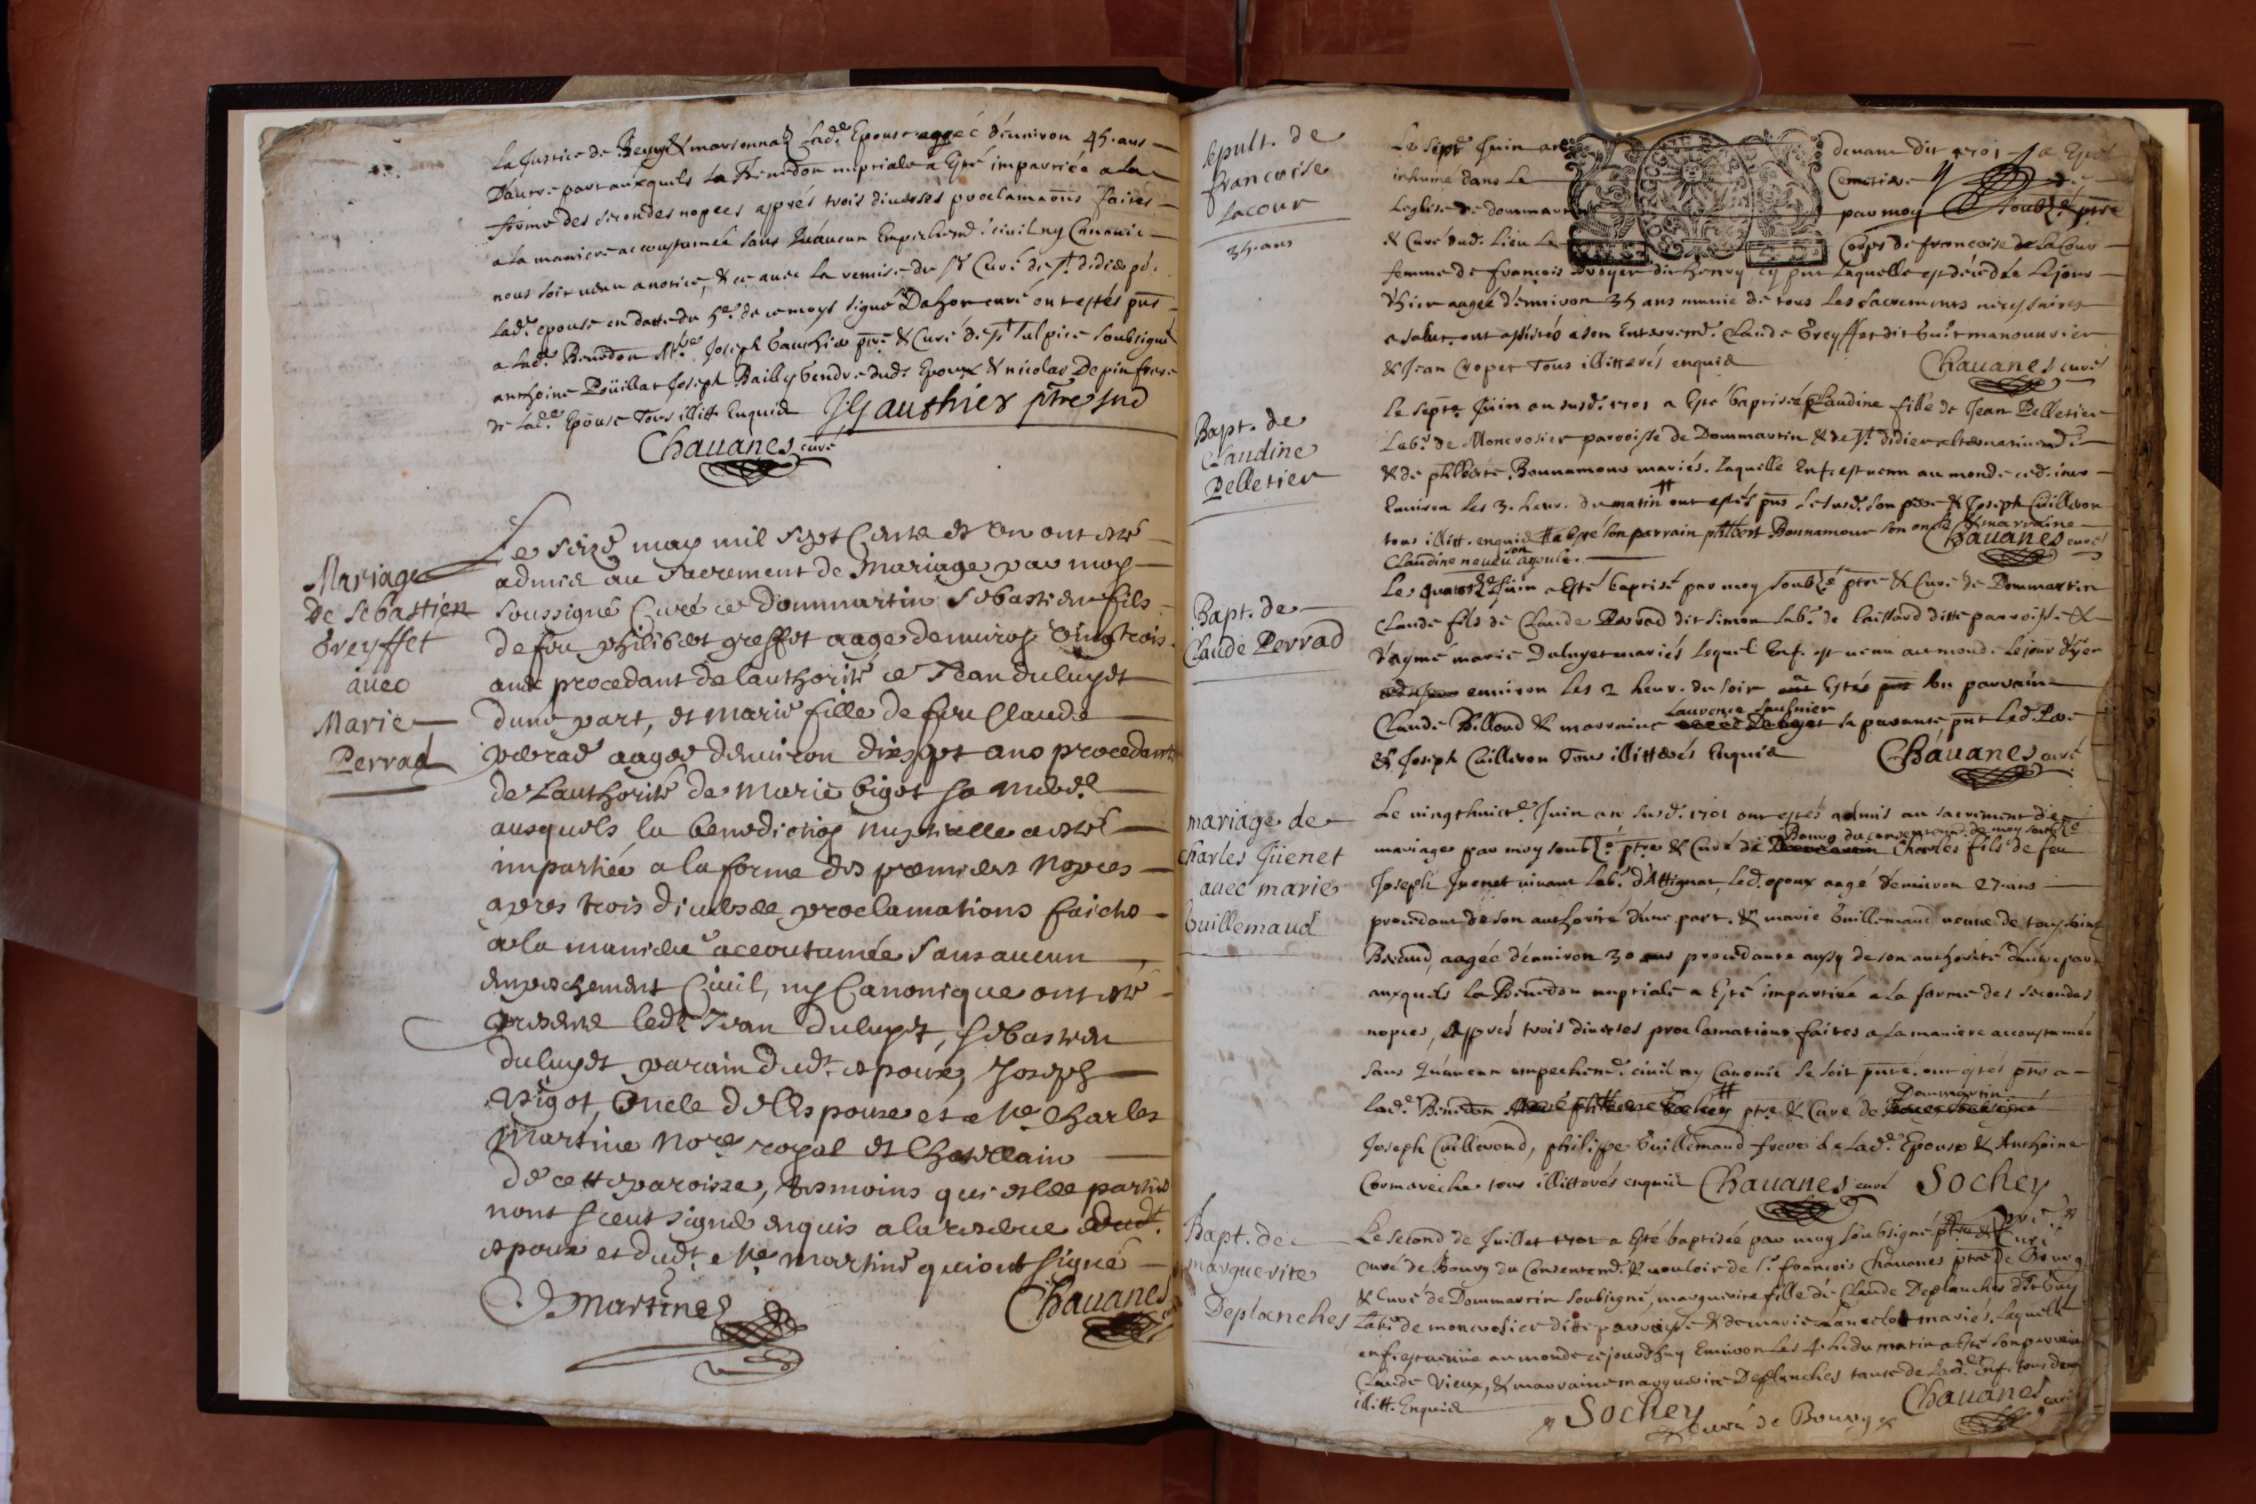 la Justice de Beuy & marsonnas lad.e Epouse aggée d'environ 45. ans
D'autre part auxquels la Bénédon nuptiale a Esté impartiée a la
forme des secondes nopces apprés trois diverses proclamaons faites
a la maniere accoustumée sans qu'aucun Empechemt. civil ny Canonic
nous soit venu a notice, & ce avec la remise du sr Curé de st. didier pd.
lad.e epouse en datte du 5.e de ce moys signé Dahor curé ont estés pnts
a lad.e Benedon Mre. Joseph Gauthier ptre & Curé de st Sulpice soubsigné
anthoine Poüillat Joseph Bailly Gendre dud. Epoux & nicolas Depin frere
de lad.e Epouse Tous illitt. Enquis JGauthier ptre sud
Chauanes curé
Mariage
De Sébastien
Greyffet
avec
Marie
Perrad
Le seize may mil sept Cents et un ont esté
admis au Sacrement de Mariage par moy
soussigné Curé de Dommartin Sebastien fils
de feu philibert greffet aage denuiron vingtrois
ans procedant de lauthorité de Jean duluyet
dune part, et marie fille de feu Claude
perrad aagee denuiron dixsept ans procedant
de Lauthorité de Marie bigot sa mere
ausquels la benediction nuptiielle a esté
impartiée a la forme des premieres Nopces
apres trois diuerses proclamations faictes
a la maniere accoutumée sans aucun
empechement Ciuil, ny Canonique ont esté
presens ledt Jean duluyet, sebastien
duluyet parain dudt. epoux, Joseph
bigot, Oncle de l'Espouse et Me Charles
Martine Nore royal et Chastellain
de cette paroisse, tesmoins qui et les parties
nont sceut signer enquis a la reserue dudt.
epoux et dudt. Me martine qui ont signé
Martine
Chauanes
sepult. de
francoise
Lacour
35. ans
Le sept Juin an
devant dit 1701 a Esté
inhumé dans le
Cemetiere de
Leglise de dommartin
par moy soubsé ptre
& Curé dud. Lieu Le
Corps de francoise de la Cour
femme de francois Broyer dit henry cy pnt Laquelle est décedée le jour
d'hier aagée d'environ 35 ans munie de tous les sacrements nécessaires
a salut. ont assistés a son Enterremt. Claude Greyffet dit Guit manouvrier
& Jean Cropet Tous illitterés enquis
Chauanes curé
Bapt. de
Claudine
Pelletier
Le sept Juin an susd. 1701 a Esté baptisée Claudine fille de Jean Pelletier
Labr. de Moncrosier parroisse de Dommartin & de st. didier alternativemt.
& de philberte Bonnamour mariés. Laquelle Enf. est venu au monde ced. jour
Environ les 3. heur. du matin # ont estés pnts le susd. son pere & Joseph Cuilleron
tous illitt. enquis # a esté son parrain philbert Bonnamour son oncle & marraine
Claudine neueu son ayeule.
Chauanes curé
Bapt. de
Claude Perrad
Le quatorze Juin a Esté baptisé par moy soubsé ptre & Curé de Dommartin
Claude fils de Claude Perrad dit Simon Labr. de laissard ditte parroisse &
d'aymé marie Duluyet mariés lequel Enf. est venu au monde le jour d'hyer
environ les 2 heur. du soir a Esté son parrain
Claude Billond & marraine Laurence Saulnier sa parante pnt led. Pere
& Joseph Cuilleron Tous illitterés Enquis
Chauanes curé
mariage de
charles Jüenet
avec marie
Guillemaud
Le vingthuicte Juin an susd. 1701 ont estés admis au sacrement de
mariage par moy soubsé. ptre & Curé de Bourg du consentemt. de moy soubsé Charles fils de feu
Joseph Juenet vivant Labr. d'Attignat, led. epoux aagé d'environ 27. ans
procedant de son authorité d'une part. & marie Guillemaud veuve de
Breand, aagée d'environ 30 ans procedante aussy de son authorité d'autre part
auxquels la Bénedon nuptiale a Esté impartiée a la forme des secondes
nopces, apprés trois diverses proclamations faites a la maniere accoustumée
sans qu'aucun empechemt. civil ny Canonic se soit pnté. ont estés pnts a
lad.e Bénedon ptre & Curé de Dommartin
Joseph Cuillerond, philippe Guillemaud frere de lad.e Epouse & Anthoine
Cormareche tous illitterés enquis Chauanes curé Sochey
Bapt. de
marguerite
Deplanches
Le second de Juillet 1701 a Esté baptisée par moy soubsigné ptre &
curé de Bourg du Consentemt. & vouloir de sr. francois Chavanes ptre de Bourg
& Curé de Dommartin soubsigné, marguerite fille de Claude Deplanches dit Guy
Labr. de moncrosier ditte parroisse & de marie Lancelot mariés, laquelle
enf. est venüe au monde ce jourd'huy Environ les 4. h. du matin a Esté son parrain
Claude Vieux, & marraine marguerite Deplanches tante de lad. Enf. tous deux
illitt. Enquis
Sochey
curé de Bourg
Chauanes curé